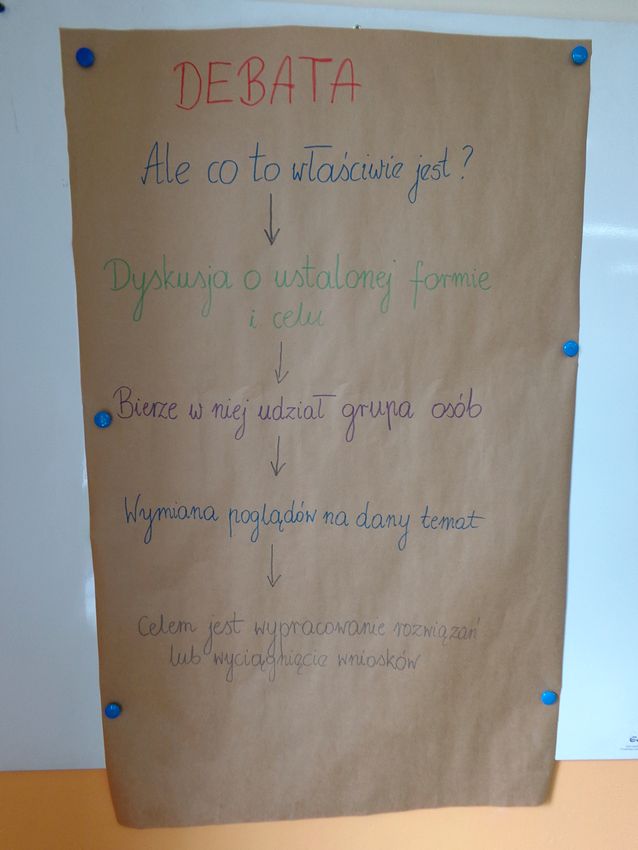 DEBATA
Ale co to właściwie jest?
Dyskusja o ustalonej formie
i celu
Bierze w niej udział grupa osób
Wymiana poglądów na dany temat
Celem jest wypracowanie rozwiązań
lub wyciągnięcie wniosków